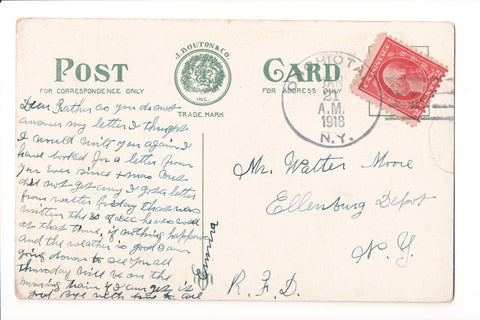 POST CARD
FOR CORRESPONDENCE ONLY
J. BOUTON & CO.
INC.
TRADE MARK
FOR ADDRESS ONLY
JAN
21
A.M.
1918
N.Y.
Dear Father as you do not
answer my letter I thought
I would write you again I
have looked for a letter from
you Ever since Xmas but
did not get any I got a letter
from walter friday that was
written the 30 of Dec he was well
at that time, if nothing happens
and the weather is good I am
going down to see you all
thursday will be on the
morning train if I can get it
good bye with love to all
Mr. Walter Moore
Ellenburg Depot
N. Y.
R. F. D.